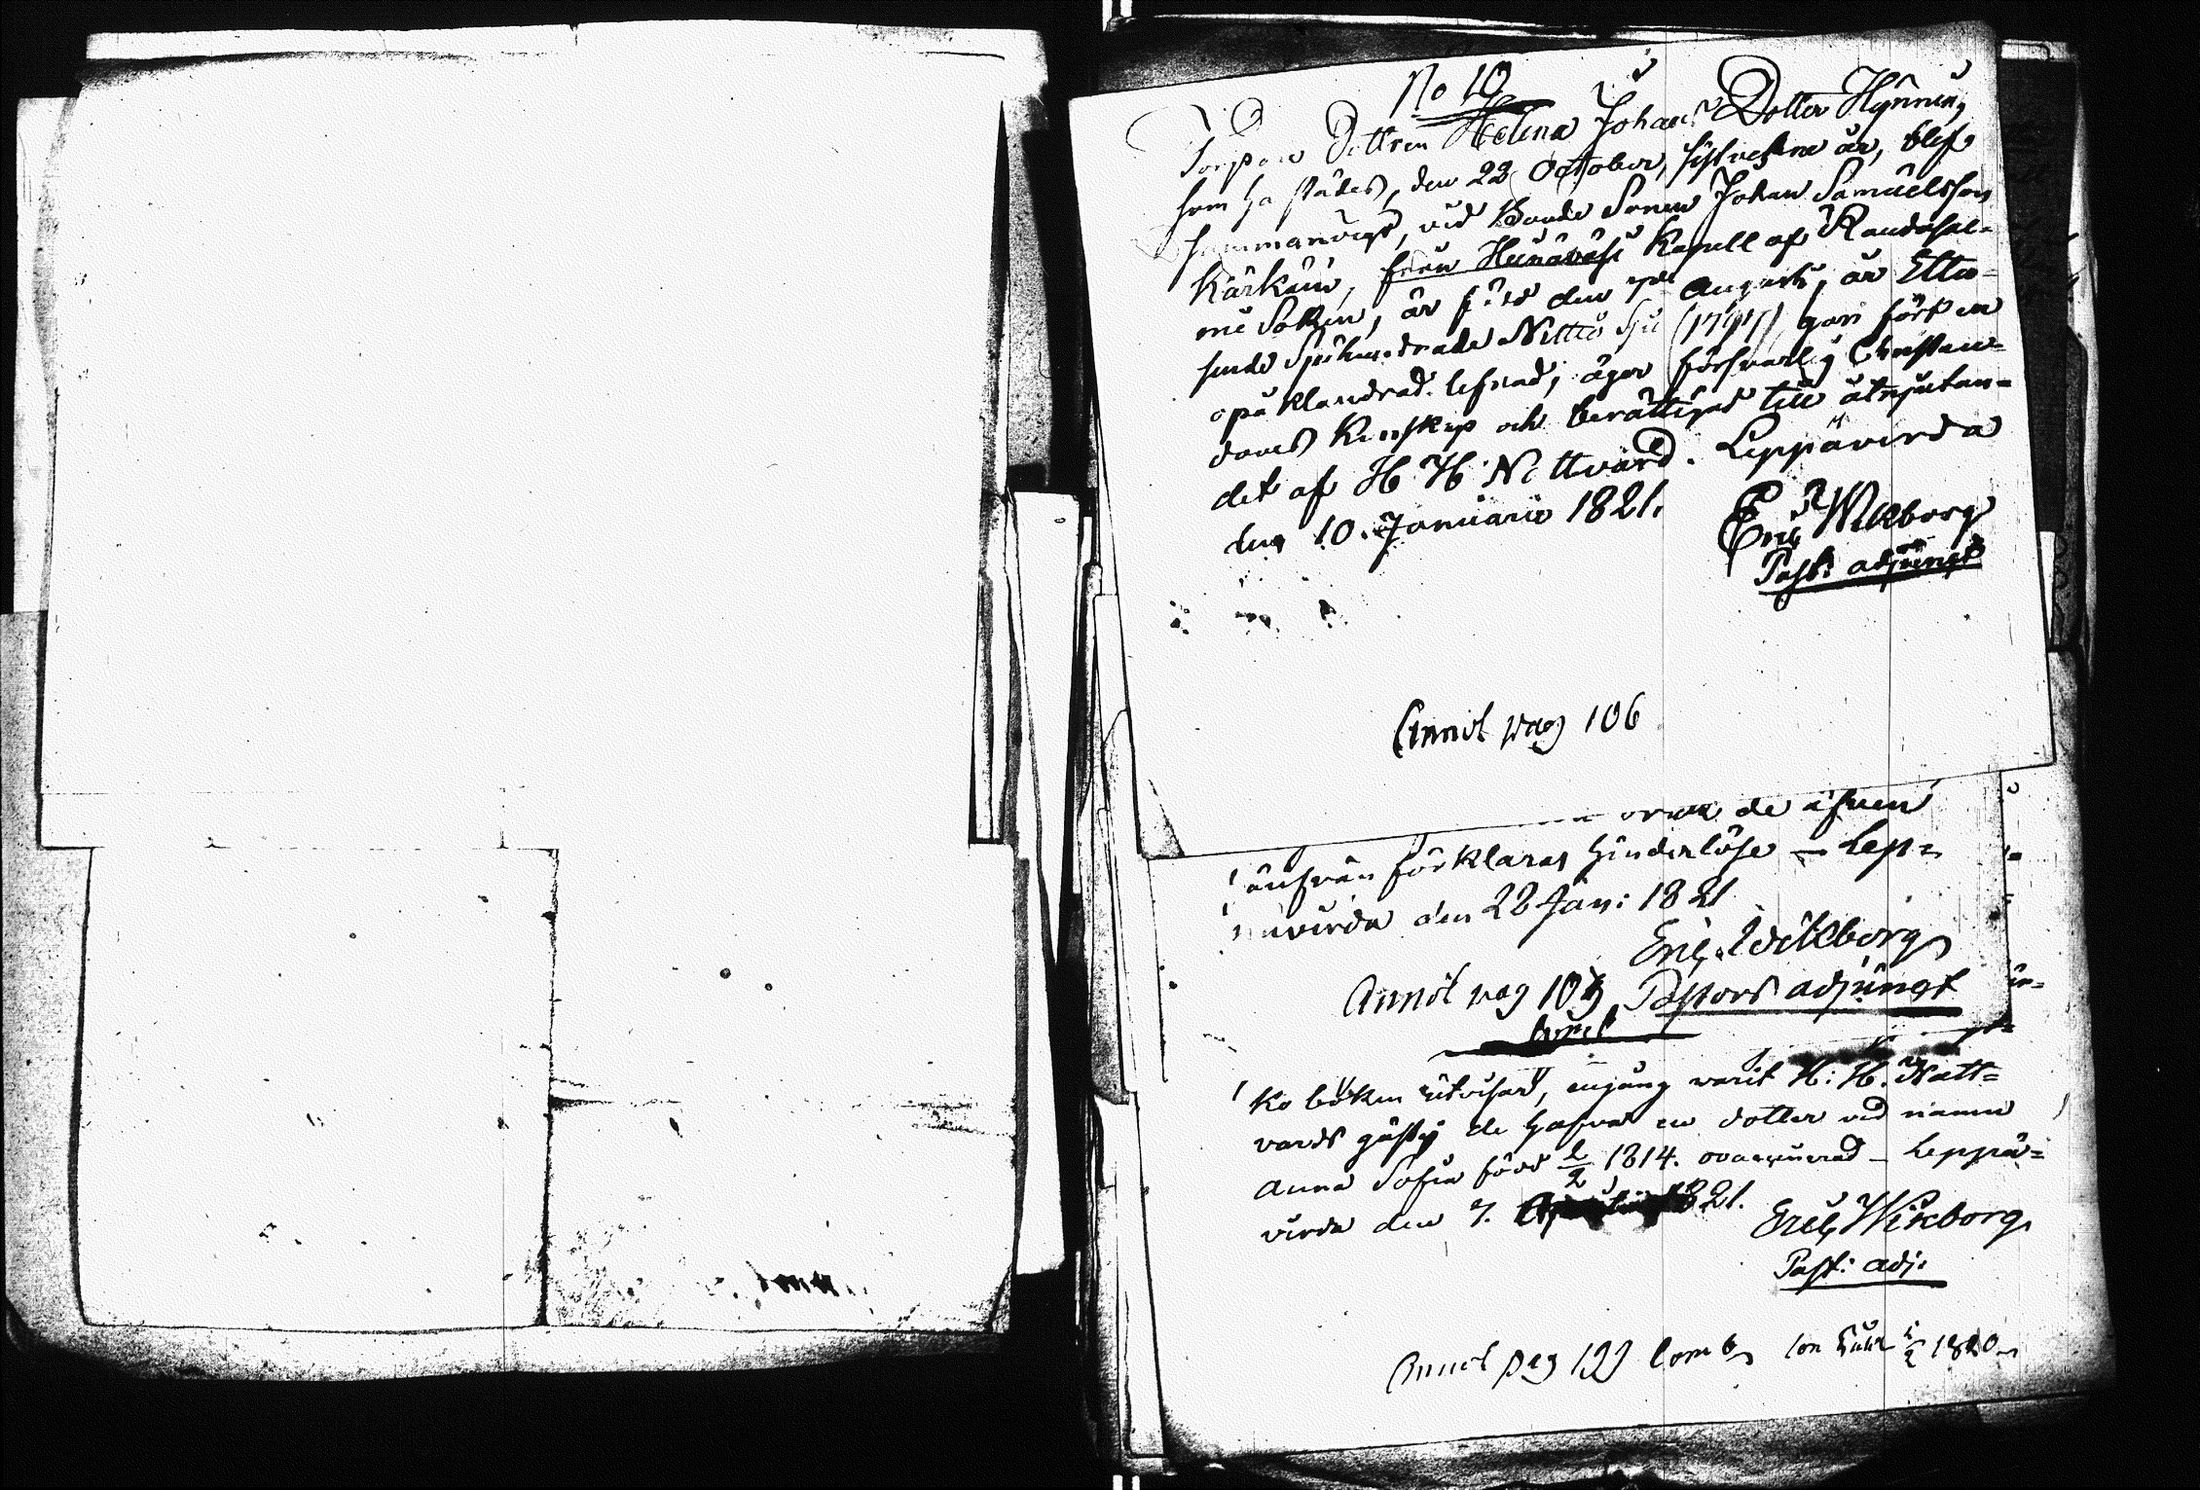 No 10
Torpare Dottren Helena Johans Dotter Hynnin,
som ha städes, den 22 October, sistvekne år, blef
sammanvigd, vid Bonde Sonen Johan Samuelsson
Kärkäin, från Heinävesi Kapell af Randasal=
mi Soken, är född den 7de Augusti, år Ettu=
sende Sjuhundrade Nittio Sju (1797), har fört en
opåklandrad lefnad; äger försvarlig Christen=
doms Kunskap och berättigad till åtnjutan=
det af H H Nattvard. Leppävirda
den 10. Januarii 1821.
Eric Wikborg
Past: adjunct
Annot pag 106
de äfven
förklaras hinderlöse — Lep=
virda den 22 Jan: 1821
Eric Wikborg
Annot pag Pastors adjungt
ko boken utvisar, ingång warit H: H. Natt=
vards gäst; de hafva en dotter vid namn
Anna Sofia född 2/2 1814. ovaccinerad — Leppä=
virda den 7. 1821.
Eric Wikborg
Past: adj:
Annot pag 1820